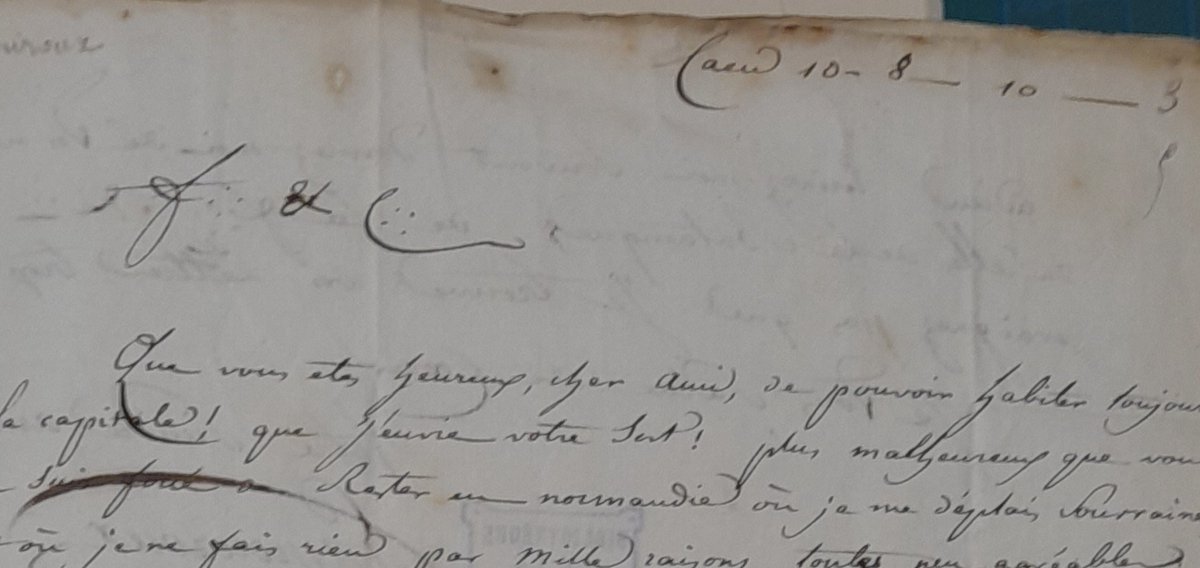 Caen 10 - 8 — 10 — 3
f∴ & C∴
Que vous etes heureux, cher ami, de pouvoir habiter toujou
la capitale! que j'envie votre sort! plus malheureux que vou
suis forcé a Rester en normandie où je me déplais Souveraine
où je ne fais rien par mille raisons toutes peu agréables